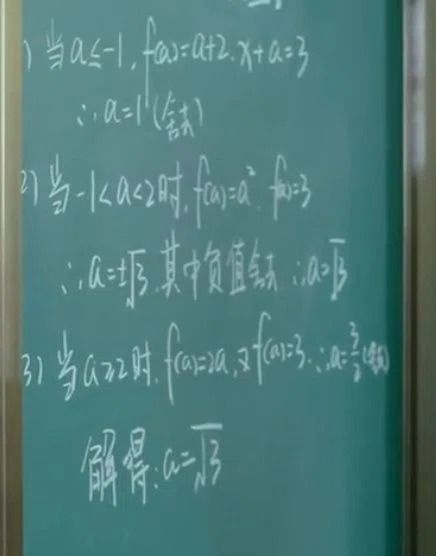 1) 当a≤-1, f(a)=a+2. x+a=3
∴a=1(舍去)
2) 当-1<a<2时, f(a)=a². f(a)=3
∴a=±√3, 其中负值舍去 ∴a=√3
3) 当a≥2时, f(a)=2a, 又f(a)=3. ∴a=3/2(舍去)
解得:a=√3